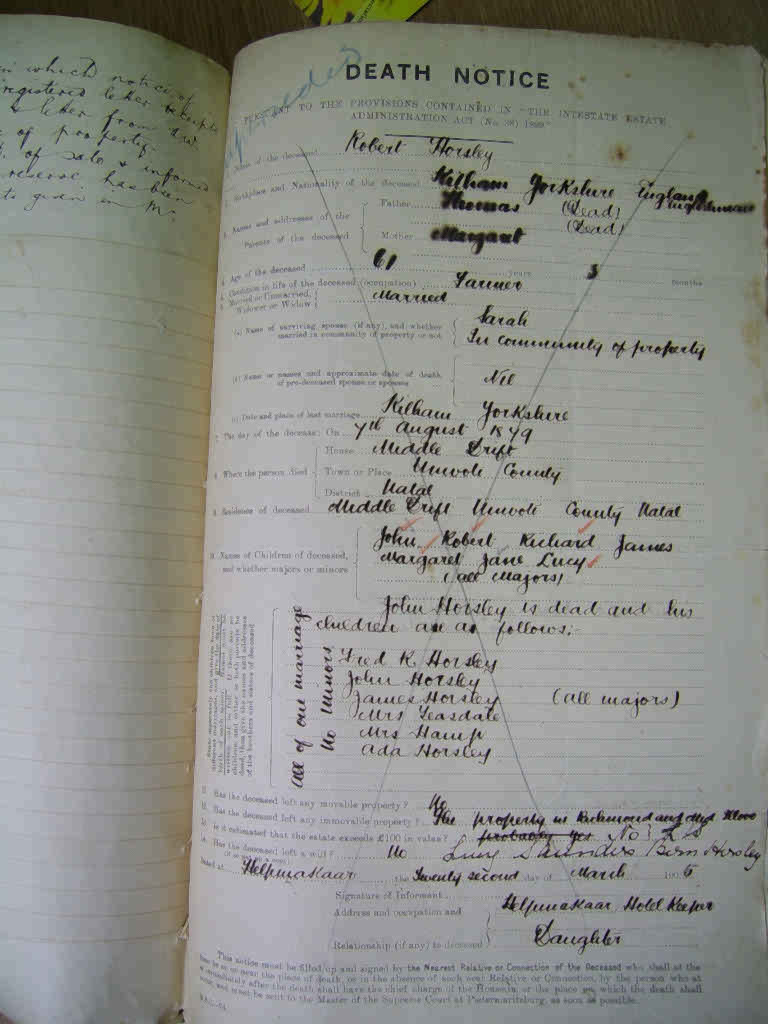 in which notice of
registered letter receipts
& letter from
of property
of sale & informed
reserve has been
to given in
DEATH NOTICE
PURSUANT TO THE PROVISIONS CONTAINED IN "THE INTESTATE ESTATE
ADMINISTRATION ACT (No. 38) 1899"
1. Name of the deceased Robert Horsley
2. Birthplace and Nationality of the deceased Kilham Yorkshire England Englishman
3. Names and addresses of the Parents of the deceased
Father Thomas (Dead)
Mother Margaret (Dead)
4. Age of the deceased 61 years 3 months
5. Condition in life of the deceased (occupation) Farmer
6. Married or Unmarried, Widower or Widow Married
(a) Name of surviving spouse (if any), and whether married in community of property or not
Sarah
In community of property
(b) Name or names and approximate date of death of pre-deceased spouse or spouses
Nil
(c) Date and place of last marriage Kilham Yorkshire
7. The day of the decease: On 7th August 1879
8. Where the person died
House Middle Drift
Town or Place Umvoti County
District Natal
9. Residence of deceased Middle Drift Umvoti County Natal
10. Names of Children of deceased, and whether majors or minors
John Robert Richard James
Margaret Jane Lucy
(all Majors)
John Horsley is dead and his
children are as follows:-
Fred K Horsley
John Horsley
James Horsley (all majors)
Mrs Teasdale
Mrs Hamp
Ada Horsley
All of one marriage
No minors
11. Has the deceased left any movable property? No
12. Has the deceased left any immovable property? The property in Richmond
13. Is it estimated that the estate exceeds £100 in value? probably yes No L S
14. Has the deceased left a will? No Lucy Saunders Born Horsley
Dated at Helpmakaar the Twenty second day of March
Signature of Informant
Address and occupation and Helpmakaar Hotel Keeper
Relationship (if any) to deceased Daughter
This notice must be filled up and signed by the Nearest Relative or Connection of the Deceased who shall at the
time be at or near the place of death, or in the absence of such near Relative or Connection, by the person who at
or immediately after the death shall have the chief charge of the House in, or the place on, which the death shall
occur, and must be sent to the Master of the Supreme Court at Pietermaritzburg, as soon as possible.